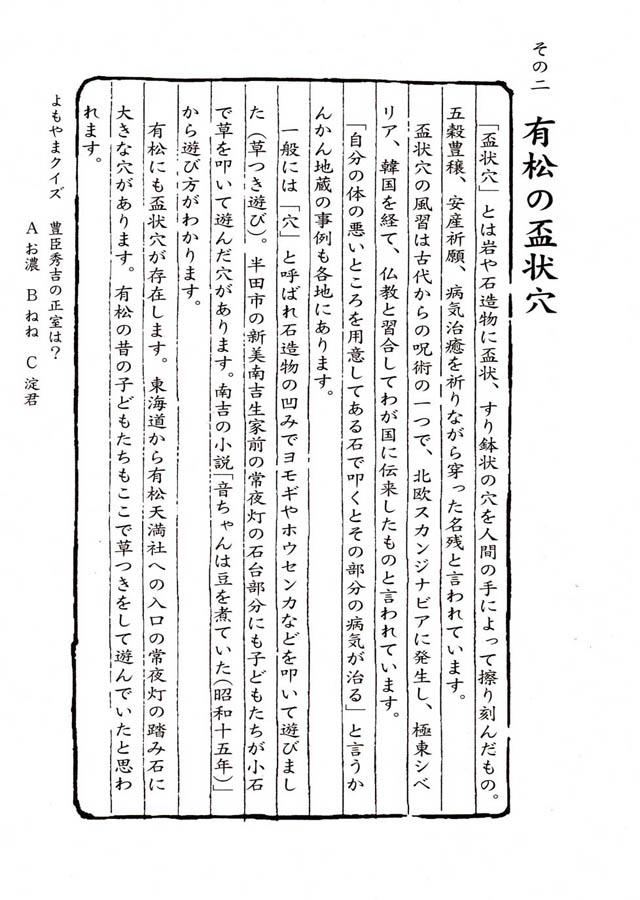 その二　有松の盃状穴
「盃状穴」とは岩や石造物に盃状、すり鉢状の穴を人間の手によって擦り刻んだもの。
五穀豊穣、安産祈願、病気治癒を祈りながら穿った名残と言われています。
盃状穴の風習は古代からの呪術の一つで、北欧スカンジナビアに発生し、極東シベ
リア、韓国を経て、仏教と習合してわが国に伝来したものと言われています。
「自分の体の悪いところを用意してある石で叩くとその部分の病気が治る」と言うか
んかん地蔵の事例も各地にあります。
一般には「穴」と呼ばれ石造物の凹みでヨモギやホウセンカなどを叩いて遊びまし
た（草つき遊び）。半田市の新美南吉生家前の常夜灯の石台部分にも子どもたちが小石
で草を叩いて遊んだ穴があります。南吉の小説「音ちゃんは豆を煮ていた（昭和十五年）」
から遊び方がわかります。
有松にも盃状穴が存在します。東海道から有松天満社への入口の常夜灯の踏み石に
大きな穴があります。有松の昔の子どもたちもここで草つきをして遊んでいたと思わ
れます。
よもやまクイズ　豊臣秀吉の正室は？
A お濃　B ねね　C 淀君